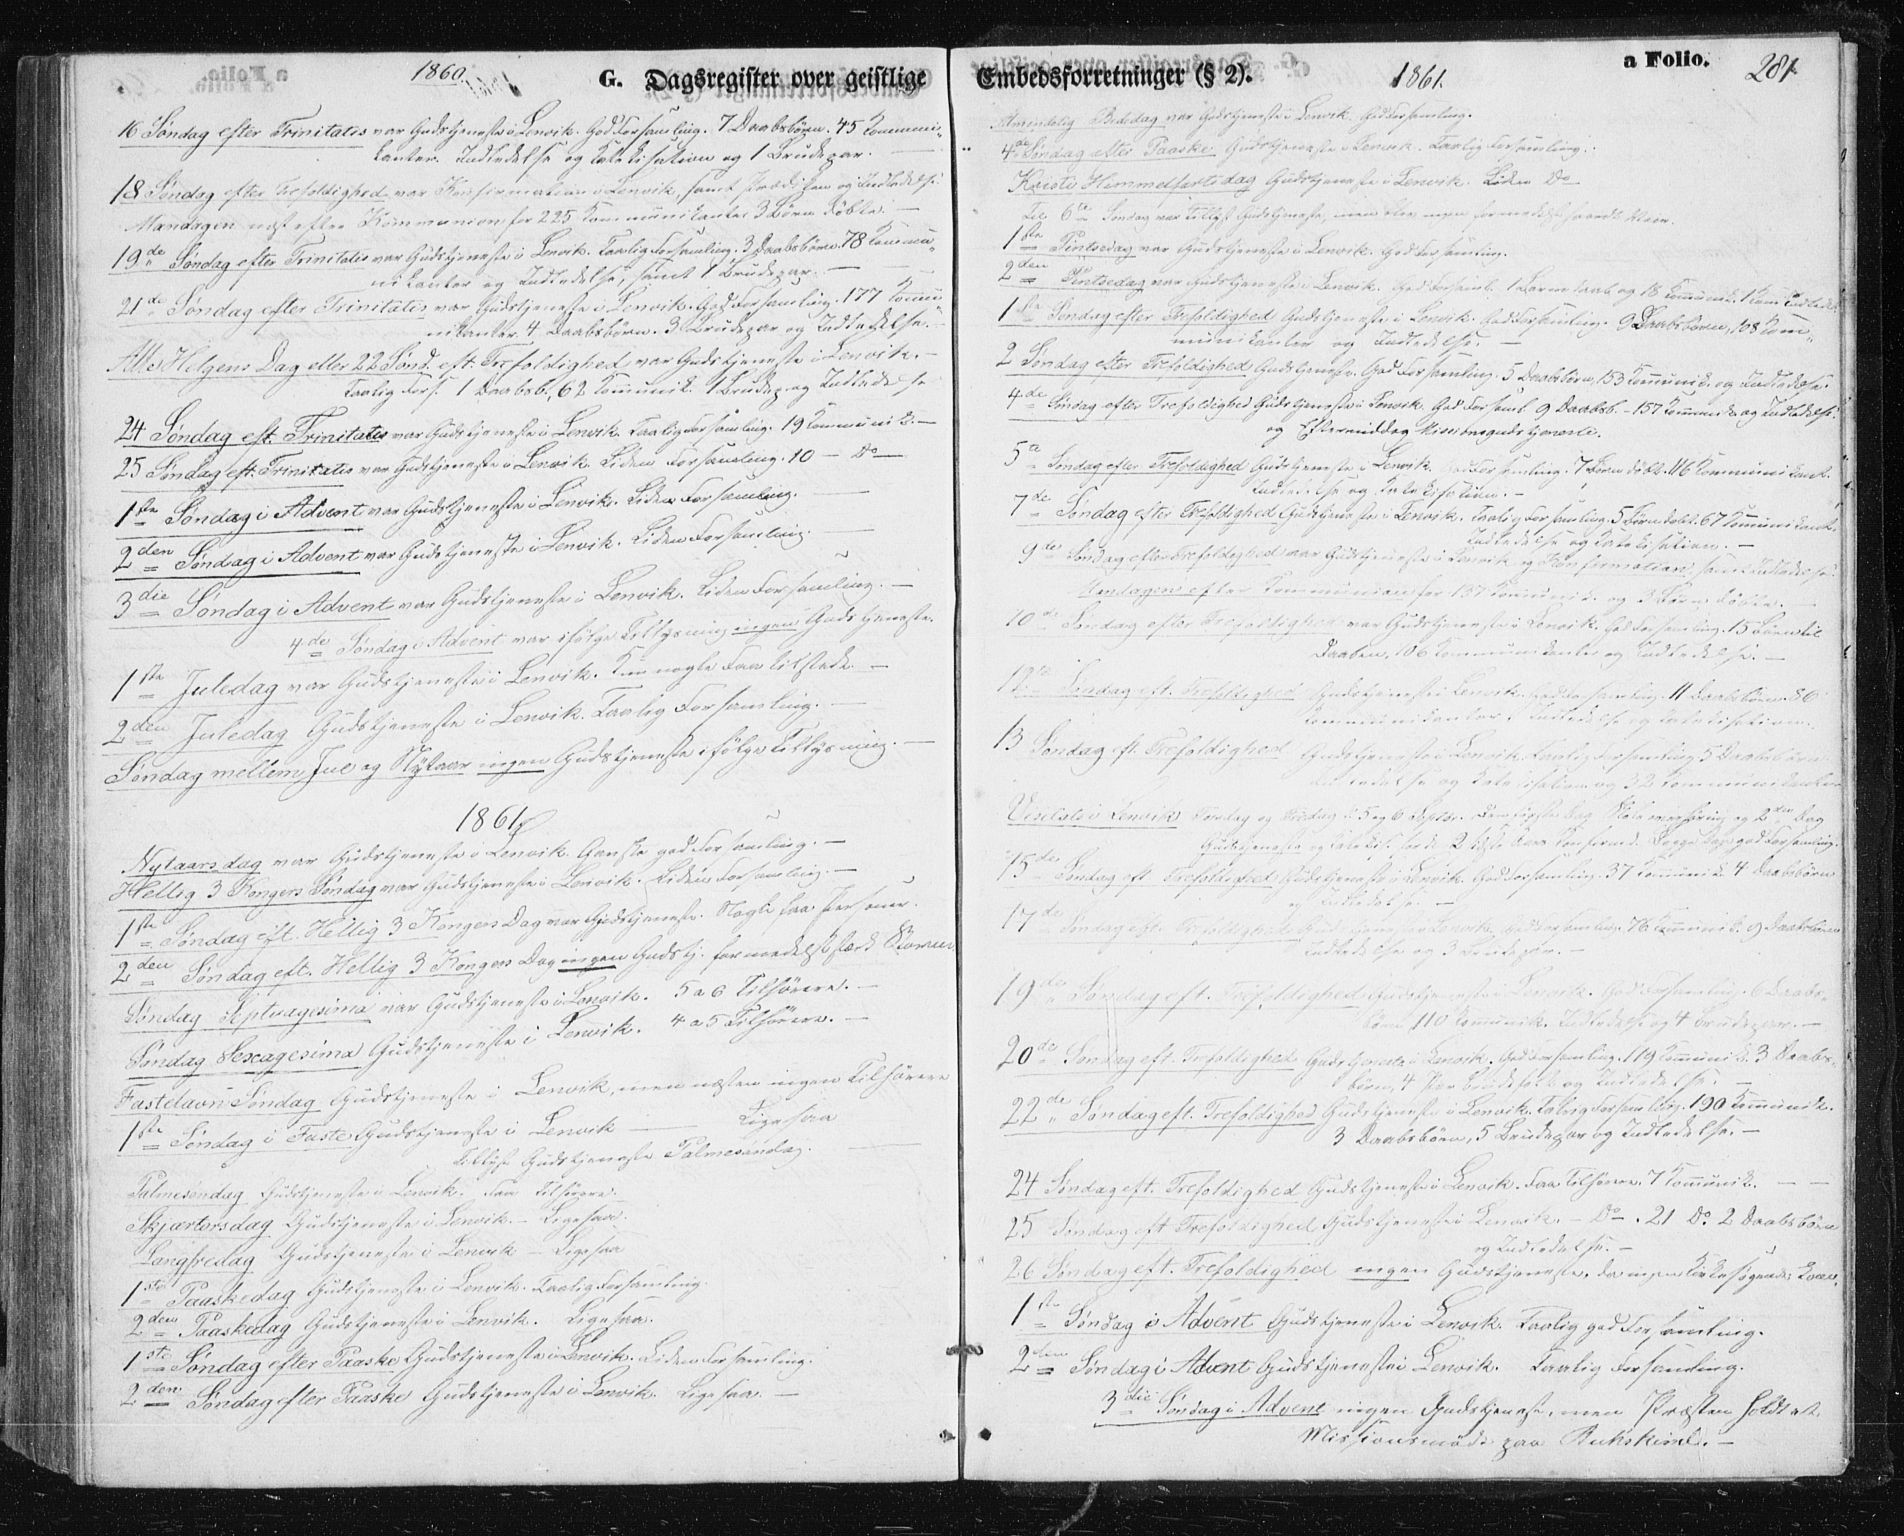 1860.
G. Dagsregister over geistlige
16 Søndag efter Trinitatis var Gudstjeneste i Lenvik. God Forsamling. 7 Daabsbørn. 45 Kommuni-
kanter. Indledelse og Katekisation og 1 Brudepar.
18 Søndag efter Trefoldighed var Konfirmation i Lenvik, samt Prædiken og Indledelse.
Mandagen næst efter Kommunion for 225 Kommunikanter 3 Børn døbte. —
19de Søndag efter Trinitatis var Gudstjeneste i Lenvik. Taalig Forsamling. 3 Daabsbørn. 78 Kommu-
nikanter og Indledelse, samt 1 Brudepar. —
21de Søndag efter Trinitatis var Gudstjeneste i Lenvik. God Forsamling. 177 Kommu-
nikanter 4 Daabsbørn. 3 Brudepar og Indledelse. —
Alle Helgens Dag eller 22 Sønd. eft. Trefoldighed var Gudstjeneste i Lenvik. —
Taalig Fors. 1 Daabsb., 62 Kommunik. 1 Brudep. og Indledelse
24 Søndag eft. Trinitatis var Gudstjeneste i Lenvik. Taalig Forsamling. 19 Kommunik. —
25 Søndag eft. Trinitatis var Gudstjeneste i Lenvik. Liden Forsamling. 10 — Do —
1ste Søndag i Advent var Gudstjeneste i Lenvik. Liden Forsamling. —
2den Søndag i Advent var Gudstjeneste i Lenvik. Liden Forsamling. —
3die Søndag i Advent var Gudstjeneste i Lenvik. Liden Forsamling. —
4de Søndag i Advent var ifølge Tillysning ingen Gudstjeneste.
1ste Juledag var Gudstjeneste i Lenvik. Kun nogle Faa tilstede. —
2den Juledag Gudstjeneste i Lenvik. Taalig Forsamling. —
Søndag mellem Jue og Nytaar ingen Gudstjeneste ifølge Tillysning. —
1861.
Nytaarsdag var Gudstjeneste i Lenvik. Ganske god Forsamling. —
Hellig 3 Kongers Søndag var Gudstjeneste i Lenvik. Liden Forsamling. —
1ste Søndag eft. Hellig 3 Kongers Dag var Gudstjeneste. Nogle faa Personer.
2den Søndag eft. Hellig 3 Kongers Dag ingen Gudstj. formedelst stærk Storm
Søndag Septuagesima var Gudstjeneste i Lenvik. 5 a 6 Tilhørere. —
Søndag Sexagesima Gudstjeneste i Lenvik. 4 a 5 Tilhørere. —
Fastelavn Søndag Gudstjeneste i Lenvik, men næsten ingen Tilhørere
1ste Søndag i Faste Gudstjeneste i Lenvik — Ligesaa
Tillyst Gudstjeneste Palmesøndag. —
Palmesøndag Gudstjeneste i Lenvik. Faa Tilhørere.
Skjærtorsdag Gudstjeneste i Lenvik. — Ligesaa.
Langfredag Gudstjeneste i Lenvik — Ligesaa
1ste Paaskedag Gudstjeneste i Lenvik. Taalig Forsamling.
2den Paaskedag Gudstjeneste i Lenvik. Ligesaa.
1ste Søndag efter Paaske Gudstjeneste i Lenvik. Liden Forsamling.
2den Søndag efter Paaske Gudstjeneste i Lenvik. Ligesaa. —
Embedsforretninger (§ 2).
1861.
a Folio.
281.
Almindelig Bededag var Gudstjeneste i Lenvik. God Forsamling.
4de Søndag efter Paaske Gudstjeneste i Lenvik. Taalig Forsamling.
Kristi Himmelfartsdag Gudstjeneste i Lenvik. Liden Do
Til 6te Søndag var tillyst Gudstjeneste, men blev ingen formedelst haardt Veir.
1ste Pintsedag var Gudstjeneste i Lenvik. God Forsamling.
2den Pintsedag var Gudstjeneste i Lenvik. God Forsaml. 1 Barnedaab og 18 Kommunik. 1 Kone Indledet
1ste Søndag efter Trefoldighed Gudstjeneste i Lenvik. God Forsamling. 9 Daabsbørn, 108 Kom-
munikanter og Indledelse. —
2 Søndag efter Trefoldighed Gudstjeneste. God Forsamling. 5 Daabsbørn, 153 Kommunik. og Indledelse.
4de Søndag efter Trefoldighed Gudstjeneste i Lenvik. God Forsaml. 9 Daabsb. — 157 Kommunik. og Indledelse
og Eftermiddag Missionsgudstjeneste.
5te Søndag efter Trefoldighed Gudstjeneste i Lenvik. God Forsamling. 7 Børn døbt. 116 Kommunikant.
Indledelse og Katekisation. —
7de Søndag efter Trefoldighed Gudstjeneste i Lenvik. Taalig Forsamling. 5 Børn døbt. 67 Kommunikanter
Indledelse og Katekisation. —
9de Søndag efter Trefoldighed var Gudstjeneste i Lenvik og Konfirmation, samt Indledelse.
Mandagen efter Kommunion for 137 Kommunik. og 3 Børn døbte. —
10de Søndag efter Trefoldighed var Gudstjeneste i Lenvik. God Forsamling. 15 Børn til
Daaben, 106 Kommunikanter og Indledelse. —
12te Søndag eft. Trefoldighed Gudstjeneste i Lenvik. God Forsamling. 11 Daabsbørn. 86
Kommunikanter, Indledelse og Katekisation.
13 Søndag eft. Trefoldighed Gudstjeneste i Lenvik. Taalig Forsamling 5 Daabsbørn
Indledelse og Katekisation og 32 Kommunikanter
Visitats i Lenvik Torsdag og Fredag d. 5 og 6 Septbr. Den første Dag Skoleoverhøring og 2den Dag
Gudstjeneste og Katekis. for de 2 sidste Aars Konfirmd. Begge Dage god Forsamling.
15de Søndag eft. Trefoldighed Gudstjeneste i Lenvik. God Forsamling. 37 Kommunik. 4 Daabsbørn
og Indledelse. —
17de Søndag eft. Trefoldighed Gudstjeneste i Lenvik. God Forsamling. 76 Kommunik. 9 Daabsbørn
Indledelse og 3 Brudepar. —
19de Søndag eft. Trefoldighed Gudstjeneste i Lenvik. God Forsamling. 6 Daabs-
børn, 110 Kommunik. Indledelse og 4 Brudepar. —
20de Søndag eft. Trefoldighed Gudstjeneste i Lenvik. God Forsamling. 119 Kommunik. 3 Daabs-
børn, 4 Par Brudefolk og Indledelse. —
22de Søndag eft. Trefoldighed Gudstjeneste i Lenvik. Talrig Forsamling. 190 Kommunik.
3 Daabsbørn, 5 Brudepar og Indledelse. —
24 Søndag eft. Trefoldighed Gudstjeneste i Lenvik. Faa Tilhørere. 7 Kommunik. —
25 Søndag eft. Trefoldighed Gudstjeneste i Lenvik. — Do — . 21 Do. 2 Daabsbørn
og Indledelse. —
26 Søndag eft. Trefoldighed ingen Gudstjeneste, da ingen Kirkesøgende kom.
1ste Søndag i Advent Gudstjeneste i Lenvik. Taalig god Forsamling.
2den Søndag i Advent Gudstjeneste i Lenvik. Taalig Forsamling.
3die Søndag i Advent ingen Gudstjeneste, men Præsten holdt et
Missionsmøde paa Bukskind. —